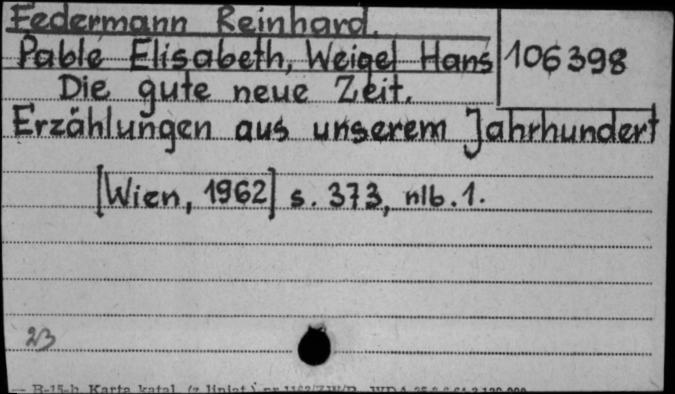 Federmann Reinhard.
Pablé Elisabeth, Weigel Hans 106398
Die gute neue Zeit.
Erzählungen aus unserem Jahrhundert
[Wien, 1962] s. 373, nlb. 1.
23
— B-15-b Karta katal. (z liniat.)